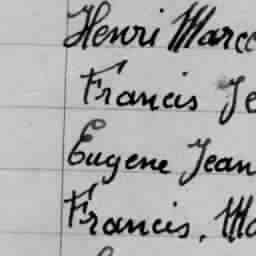 Henri Marce
Francis Je
Eugene Jean
Francis. Ma